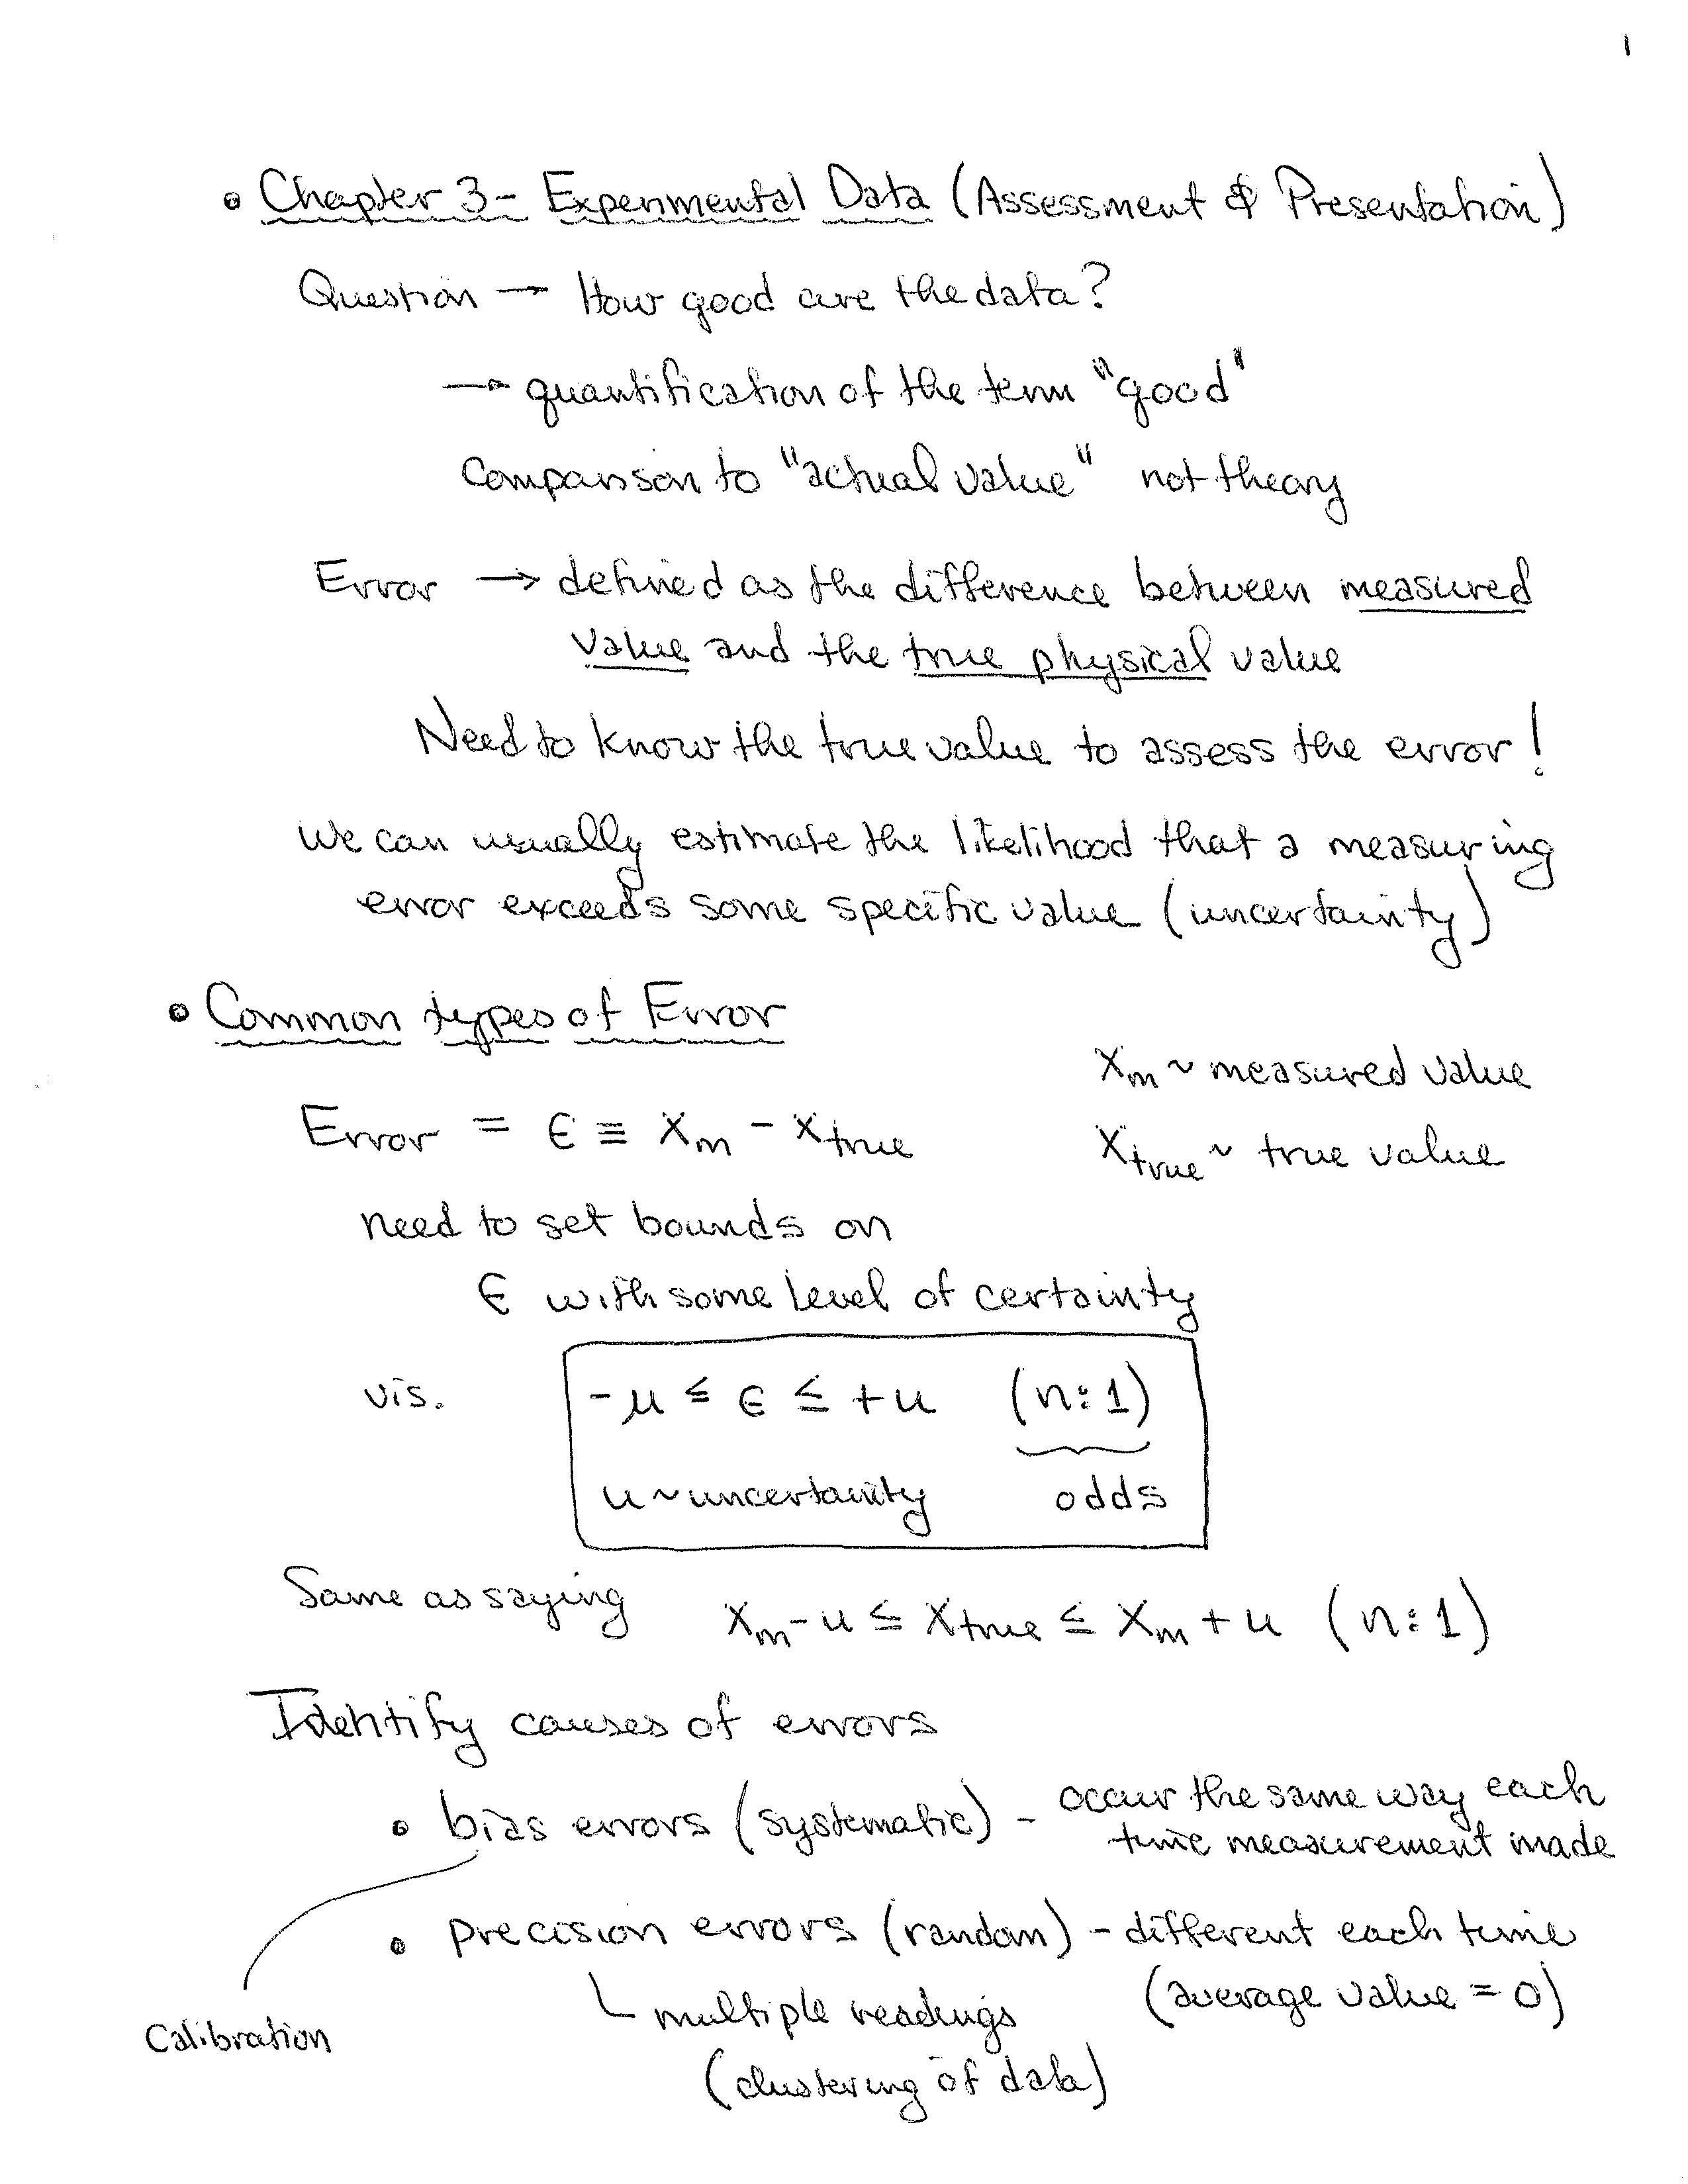 1
• Chapter 3 - Experimental Data (Assessment & Presentation)
Question → How good are the data?
→ quantification of the term "good"
Comparison to "actual value" not theory
Error → defined as the difference between measured
value and the true physical value
Need to know the true value to assess the error!
We can usually estimate the likelihood that a measuring
error exceeds some specific value (uncertainty)
• Common types of Error
Xm ~ measured value
Error = ϵ ≡ Xm - Xtrue
Xtrue ~ true value
need to set bounds on
ϵ with some level of certainty
vis. -u ≤ ϵ ≤ +u (n:1)
u ~ uncertainty odds
Same as saying Xm - u ≤ Xtrue ≤ Xm + u (n:1)
Identify causes of errors
• bias errors (systematic) - occur the same way each
time measurement made
• precision errors (random) - different each time
(average value = 0)
multiple readings
Calibration
(clustering of data)